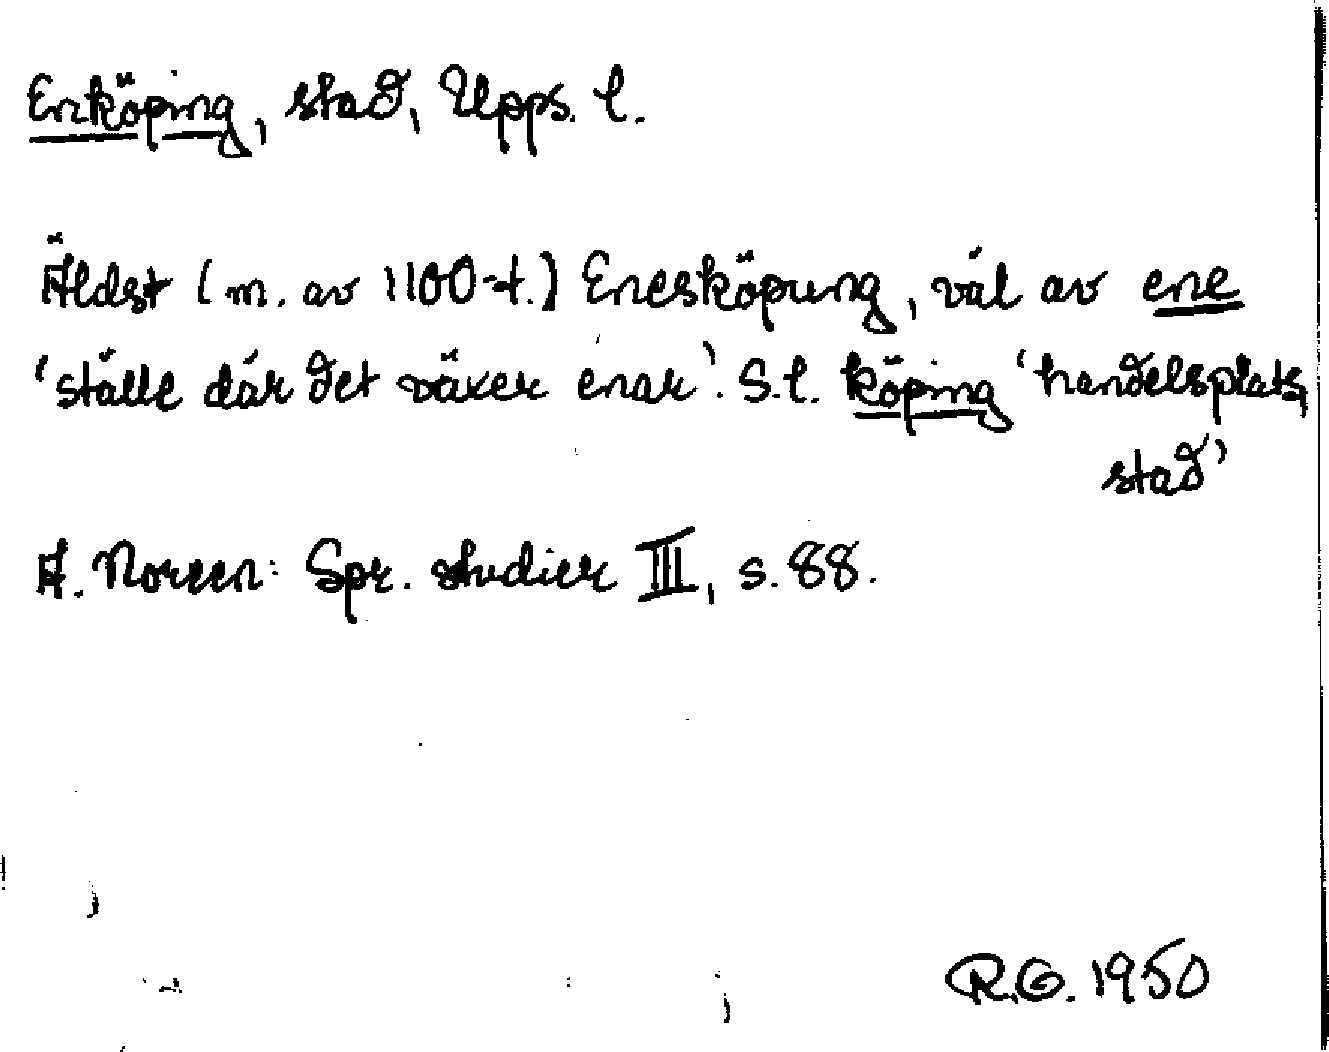 Enköping, stad, Upps. l.
Äldst (m. av 1100-t.) Enesköpung, väl av ene
'ställe där det växer enar'. S.l. köping 'handelsplats,
stad'
A. Noreen: Spr. studier III, s. 88.
R.G. 1950